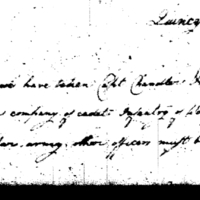 Quincy
we have taken Capt Chandler
company of cadet Infantry &
army. other officers must b